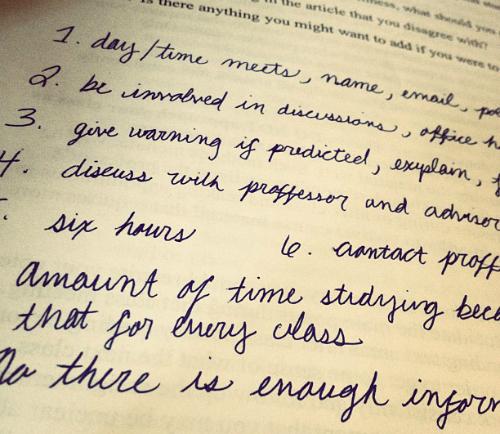 in the article that you disagree with?
is there anything you might want to add if you were to
1. day/time meets, name, email,
2. be involved in discussions, office
3. give warning if predicted, exyplain,
4. discuss with proffessor and advisor
six hours 6. contact proff
amount of time studying bec
that for every class
No there is enough inform